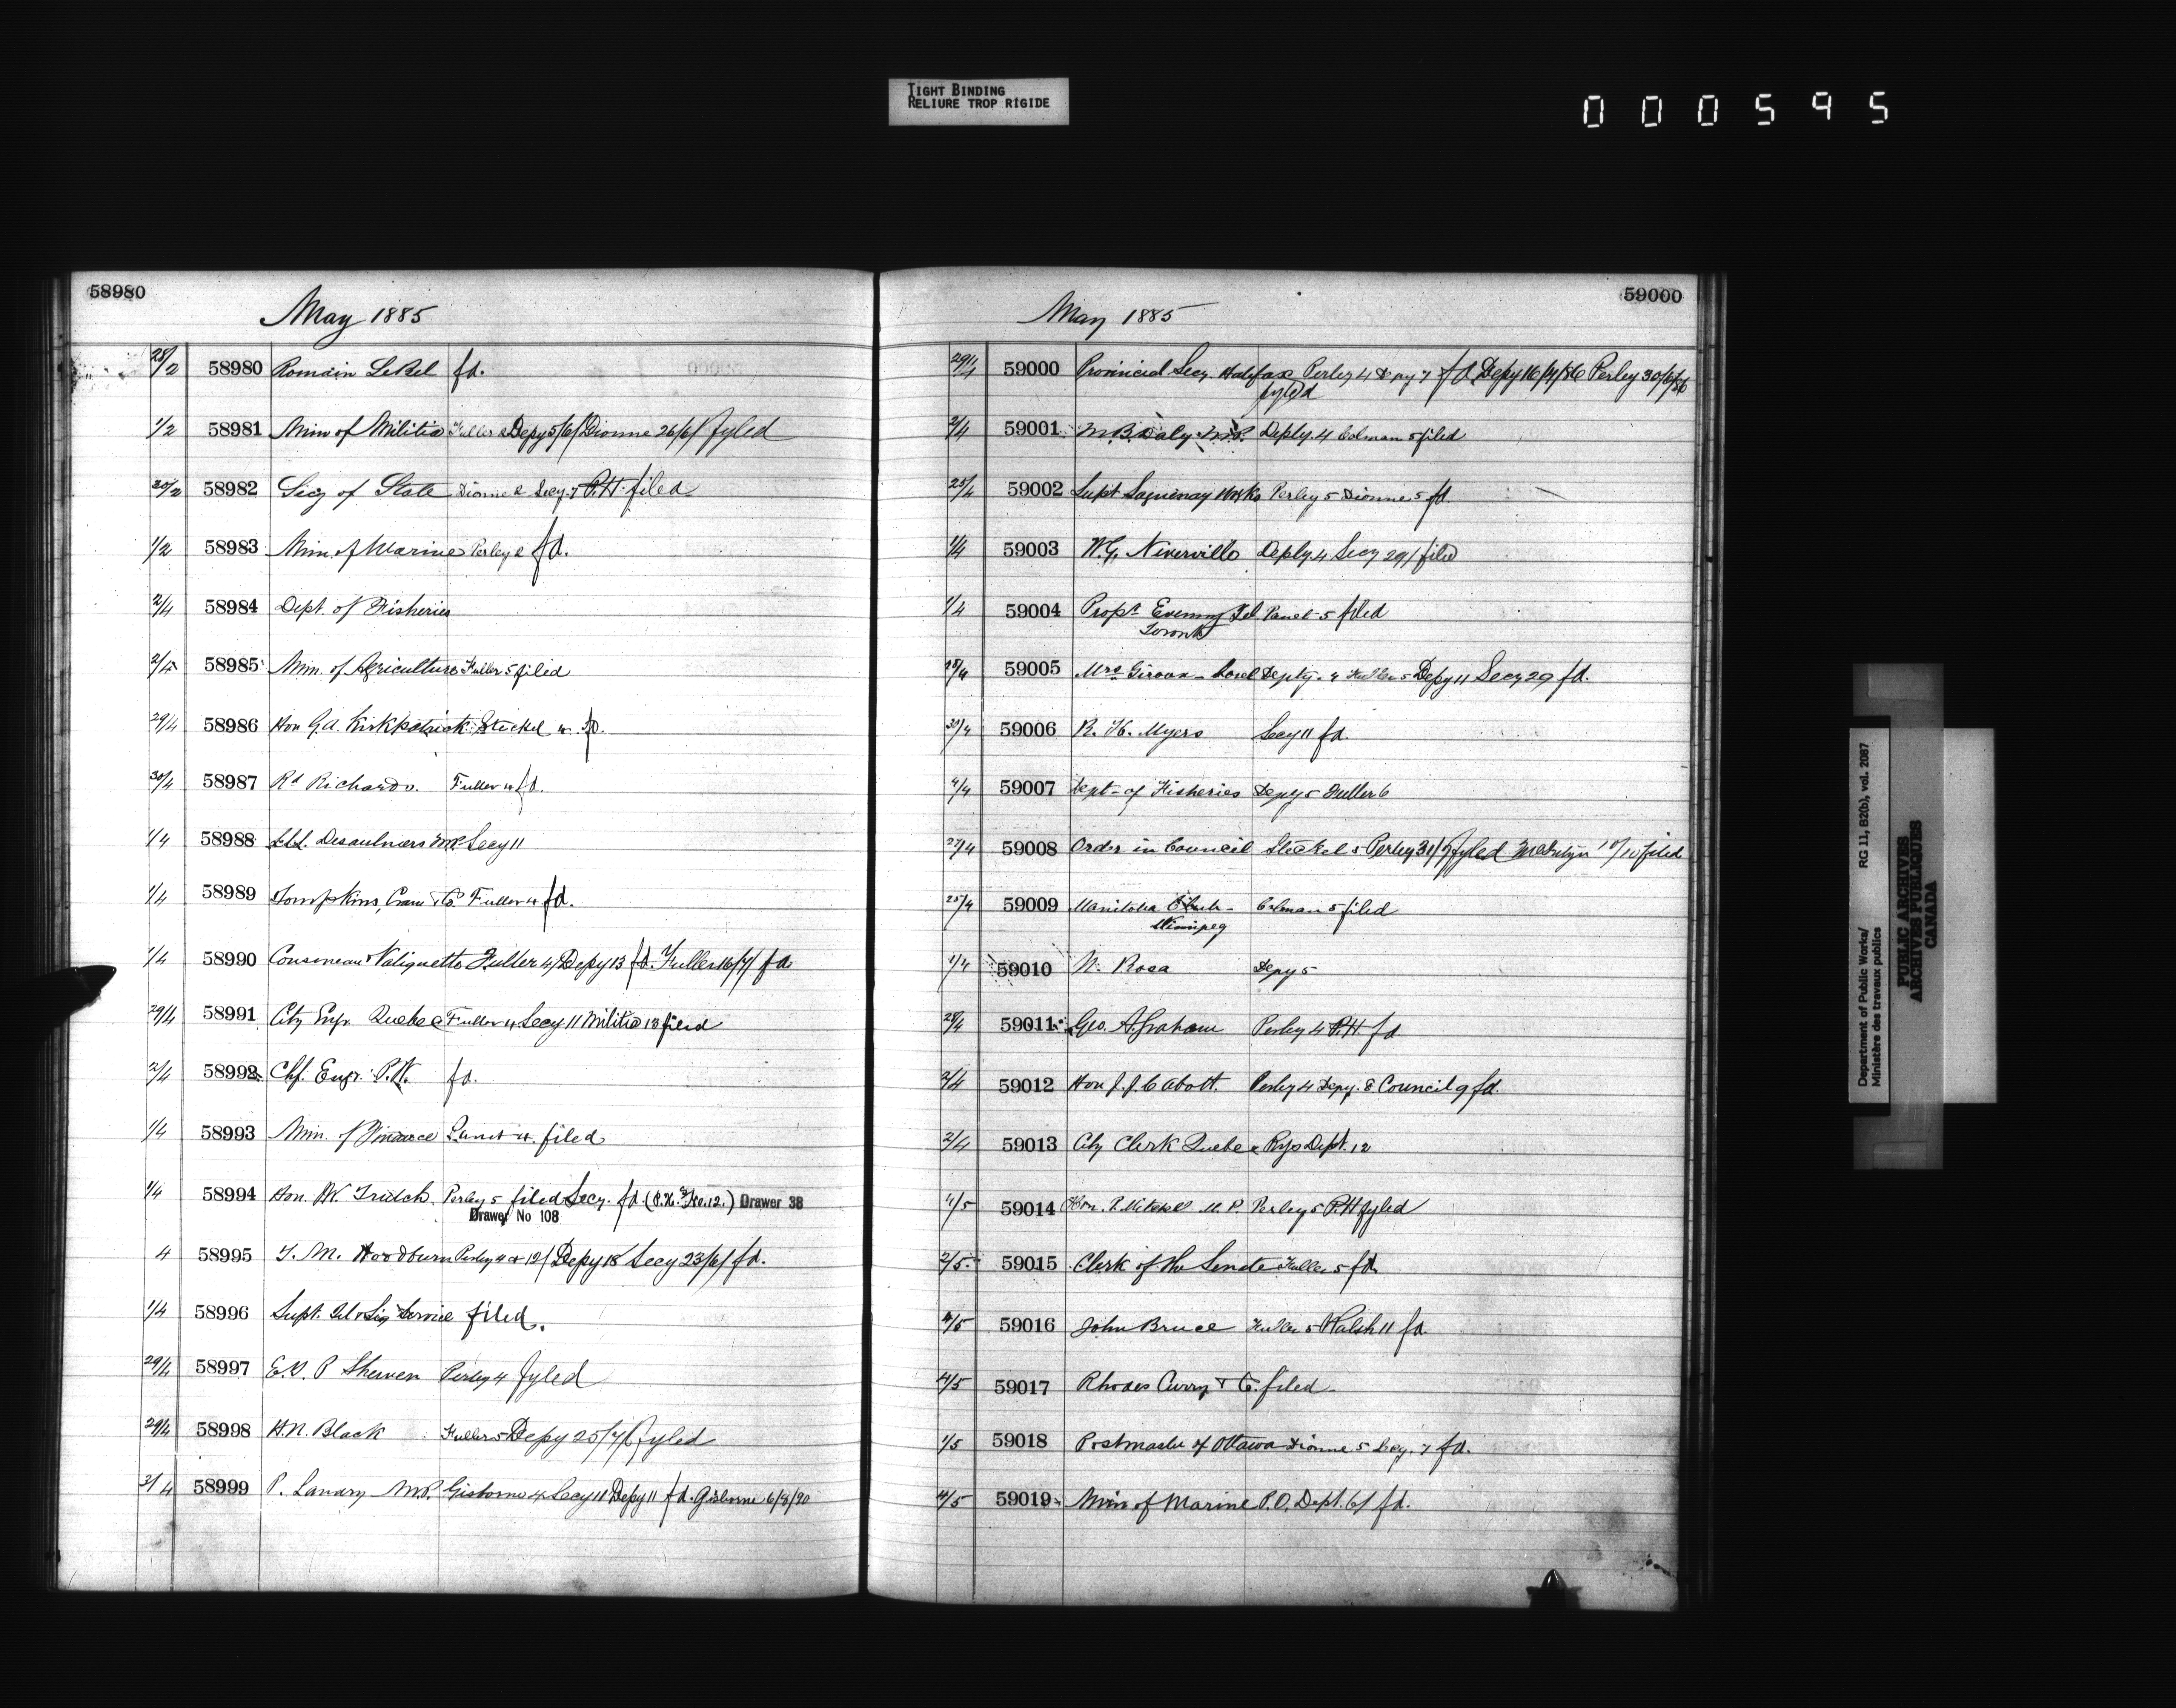 TIGHT BINDING
RELIURE TROP RIGIDE
000595
58980
May 1885
28/2 58980 Romain LeBel fd.
1/2 58981 Min of Militia Fuller 2 Depy 5/6/ Dionne 26/6/ fyled
30/2 58982 Secy of State Dionne 2 Secy 7 P.H. filed
1/2 58983 Min. of Marine Perley 2 fd.
2/4 58984 Dept. of Fisheries
2/4 58985 Min. of Agriculture Fuller 5 filed
29/4 58986 Hon G.A. Kirkpatrick Steckel 4 fd.
30/4 58987 Rd Richards. Fuller 4 fd.
1/4 58988 Desaulniers MP Secy 11
1/4 58989 Tompkins, Cram & Co. Fuller 4 fd.
1/4 58990 Cousineau & Valiquette Fuller 4/ Depy 13 fd. Fuller 16/7/ fd
29/4 58991 City Engr. Quebec Fuller 4 Secy 11 Militia 13 filed
2/4 58992 Chf. Engr. P.W. fd.
1/4 58993 Min. of Finance Panet 4. filed
1/4 58994 Hon. J.W. Trutch. Perley 5 filed Secy. fd. (P.H. No. 12.) Drawer 38
Drawer No 108
4 58995 T. M. Woodburn Perley 4 & 12/ Depy 18 Secy 23/6/ fd.
1/4 58996 Supt. Tel & Sig Service filed.
29/4 58997 E.V.P Shewen Perley 4 fyled
29/4 58998 H.N. Black Fuller 5 Depy 25/7/ fyled
3/4 58999 P. Landry M.P. Gisborne 4 Secy 11 Depy 11 fd. Gisborne 6/8/90
59000
May 1885
29/4 59000 Provincial Secy. Halifax Perley 4 Depy 7 fd Depy 16/4/86 Perley 30/6/86
fyled
2/4 59001 M.B. Daly M.P. Deply. 4 Colman 5 filed
25/4 59002 Supt Saguenay Works Perley 5 Dionne 5 fd.
1/4 59003 W.G. Niverville Deply. 4 Secy 29/ filed
1/4 59004 Propr. Evening Tel Panet 5 filed
Toronto
28/4 59005 Mrs. Giroux - Sorel Depty. 4 Fuller 5 Depy 11 Secy 29 fd.
30/4 59006 R. H. Myers Secy 11 fd.
4/4 59007 Dept. of Fisheries Depy 5 Fuller 6
27/4 59008 Order in Council Steckel 5 Perley 31/7 fyled filed
25/4 59009 Manitoba Club - Colman 5 filed
Winnipeg
1/4 59010 W. Rosa Depy 5
28/4 59011 Geo. A. Graham Perley 4 P.H. fd
2/4 59012 Hon J.J.C Abott. Perley 4 Depy. 8 Council 9 fd.
2/4 59013 City Clerk Quebec Rys Dept. 12
4/5 59014 Hon. P. Mitchell M.P. Perley 5 P.H fyled
2/5 59015 Clerk of the Senate Fuller 5 fd.
4/5 59016 John Bruce Fuller 5 Walsh 11 fd.
4/5 59017 Rhodes Curry & Co. filed
1/5 59018 Postmaster of Ottawa Dionne 5 Secy. 7 fd.
4/5 59019 Min of Marine P.O. Dept. 6/ fd.
Department of Public Works/ RG 11, B2(b), vol. 2087
Ministère des travaux publics
PUBLIC ARCHIVES
ARCHIVES PUBLIQUES
CANADA